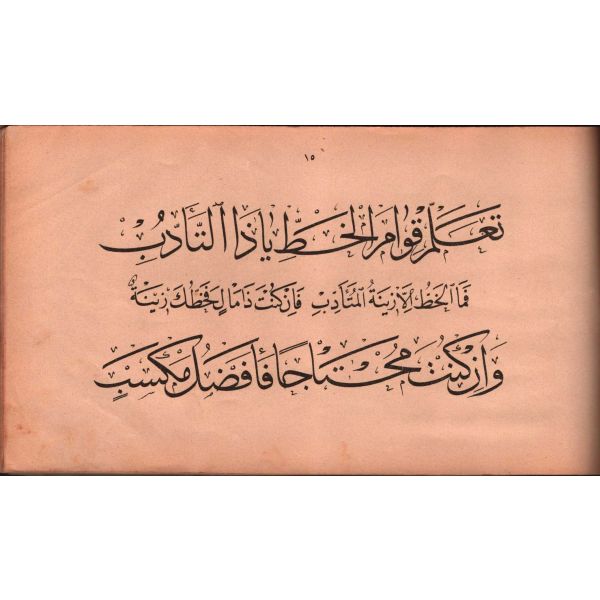 ١٥
تَعَلَّمْ قَوَامَ الْخَطِّ يَا ذَا التَّأَدُّبِ
فَمَا الْخَطُّ اِلَّا زِينَةُ الْمُتَأَدِّبِ فَاِنْ كُنْتَ ذَا مَالٍ فَخَطُّكَ زِينَةٌ
وَاِنْ كُنْتَ مُحْتَاجًا فَأَفْضَلُ مَكْسَبِ